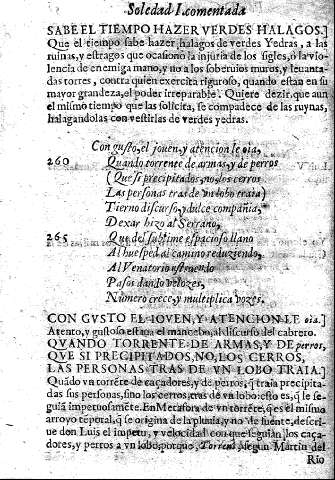 Soledad I. comentada
SABE EL TIEMPO HAZER VERDES HALAGOS.]
Que el tiempo sabe hazer halagos de verdes Yedras, a las
ruinas, y estragos que ocasionò la injuria de los siglos, ò la vio-
lencia de enemiga mano, y no a los soberuios muros, y leuanta-
das torres, contra quien exercita riguroso, quando estan en su
mayor grandeza, el poder irreparable. Quiere dezir, que aun
el mismo tiempo que las solicita, se compadece de las ruynas,
halagandolas con vestirlas de verdes yedras.
Con gusto, el jouen, y atencion le oia,
260 Quando torrente de armas, y de perros
(Que si precipitados, no, los cerros
Las personas tras de vn lobo traia)
Tierno discurso, y dulce compañia,
Dexar hizo al Serrano,
265 Que del sublime espacioso llano
Al huesped al camino reduziendo,
Al Venatorio estruendo
Pasos dando velozes,
Numero crece, y multiplica vozes.
CON GVSTO EL IOVEN, Y ATENCION LE oia.]
Atento, y gustoso estaua el mancebo, al discurso del cabrero.
QVANDO TORRENTE DE ARMAS, Y DE perros,
QVE SI PRECIPITADOS, NO, LOS CERROS,
LAS PERSONAS TRAS DE VN LOBO TRAIA.]
Quãdo vn torrẽte de caçadores, y de perros, q̃ traia precipita-
das sus personas, sino los cerros, tras de vn lobo: esto es, q̃ le se-
guiã impetuosamẽte. En Metafora de vn torrẽte, q̃ es el mismo
arroyo tẽporal, q̃ se origina de la pluuia, y no de fuente, descri-
ue don Luis el impetu, y velocidad con que seguian los caça-
dores, y perros a vn lobo, porque, Torrens, segun Martin del
Rio